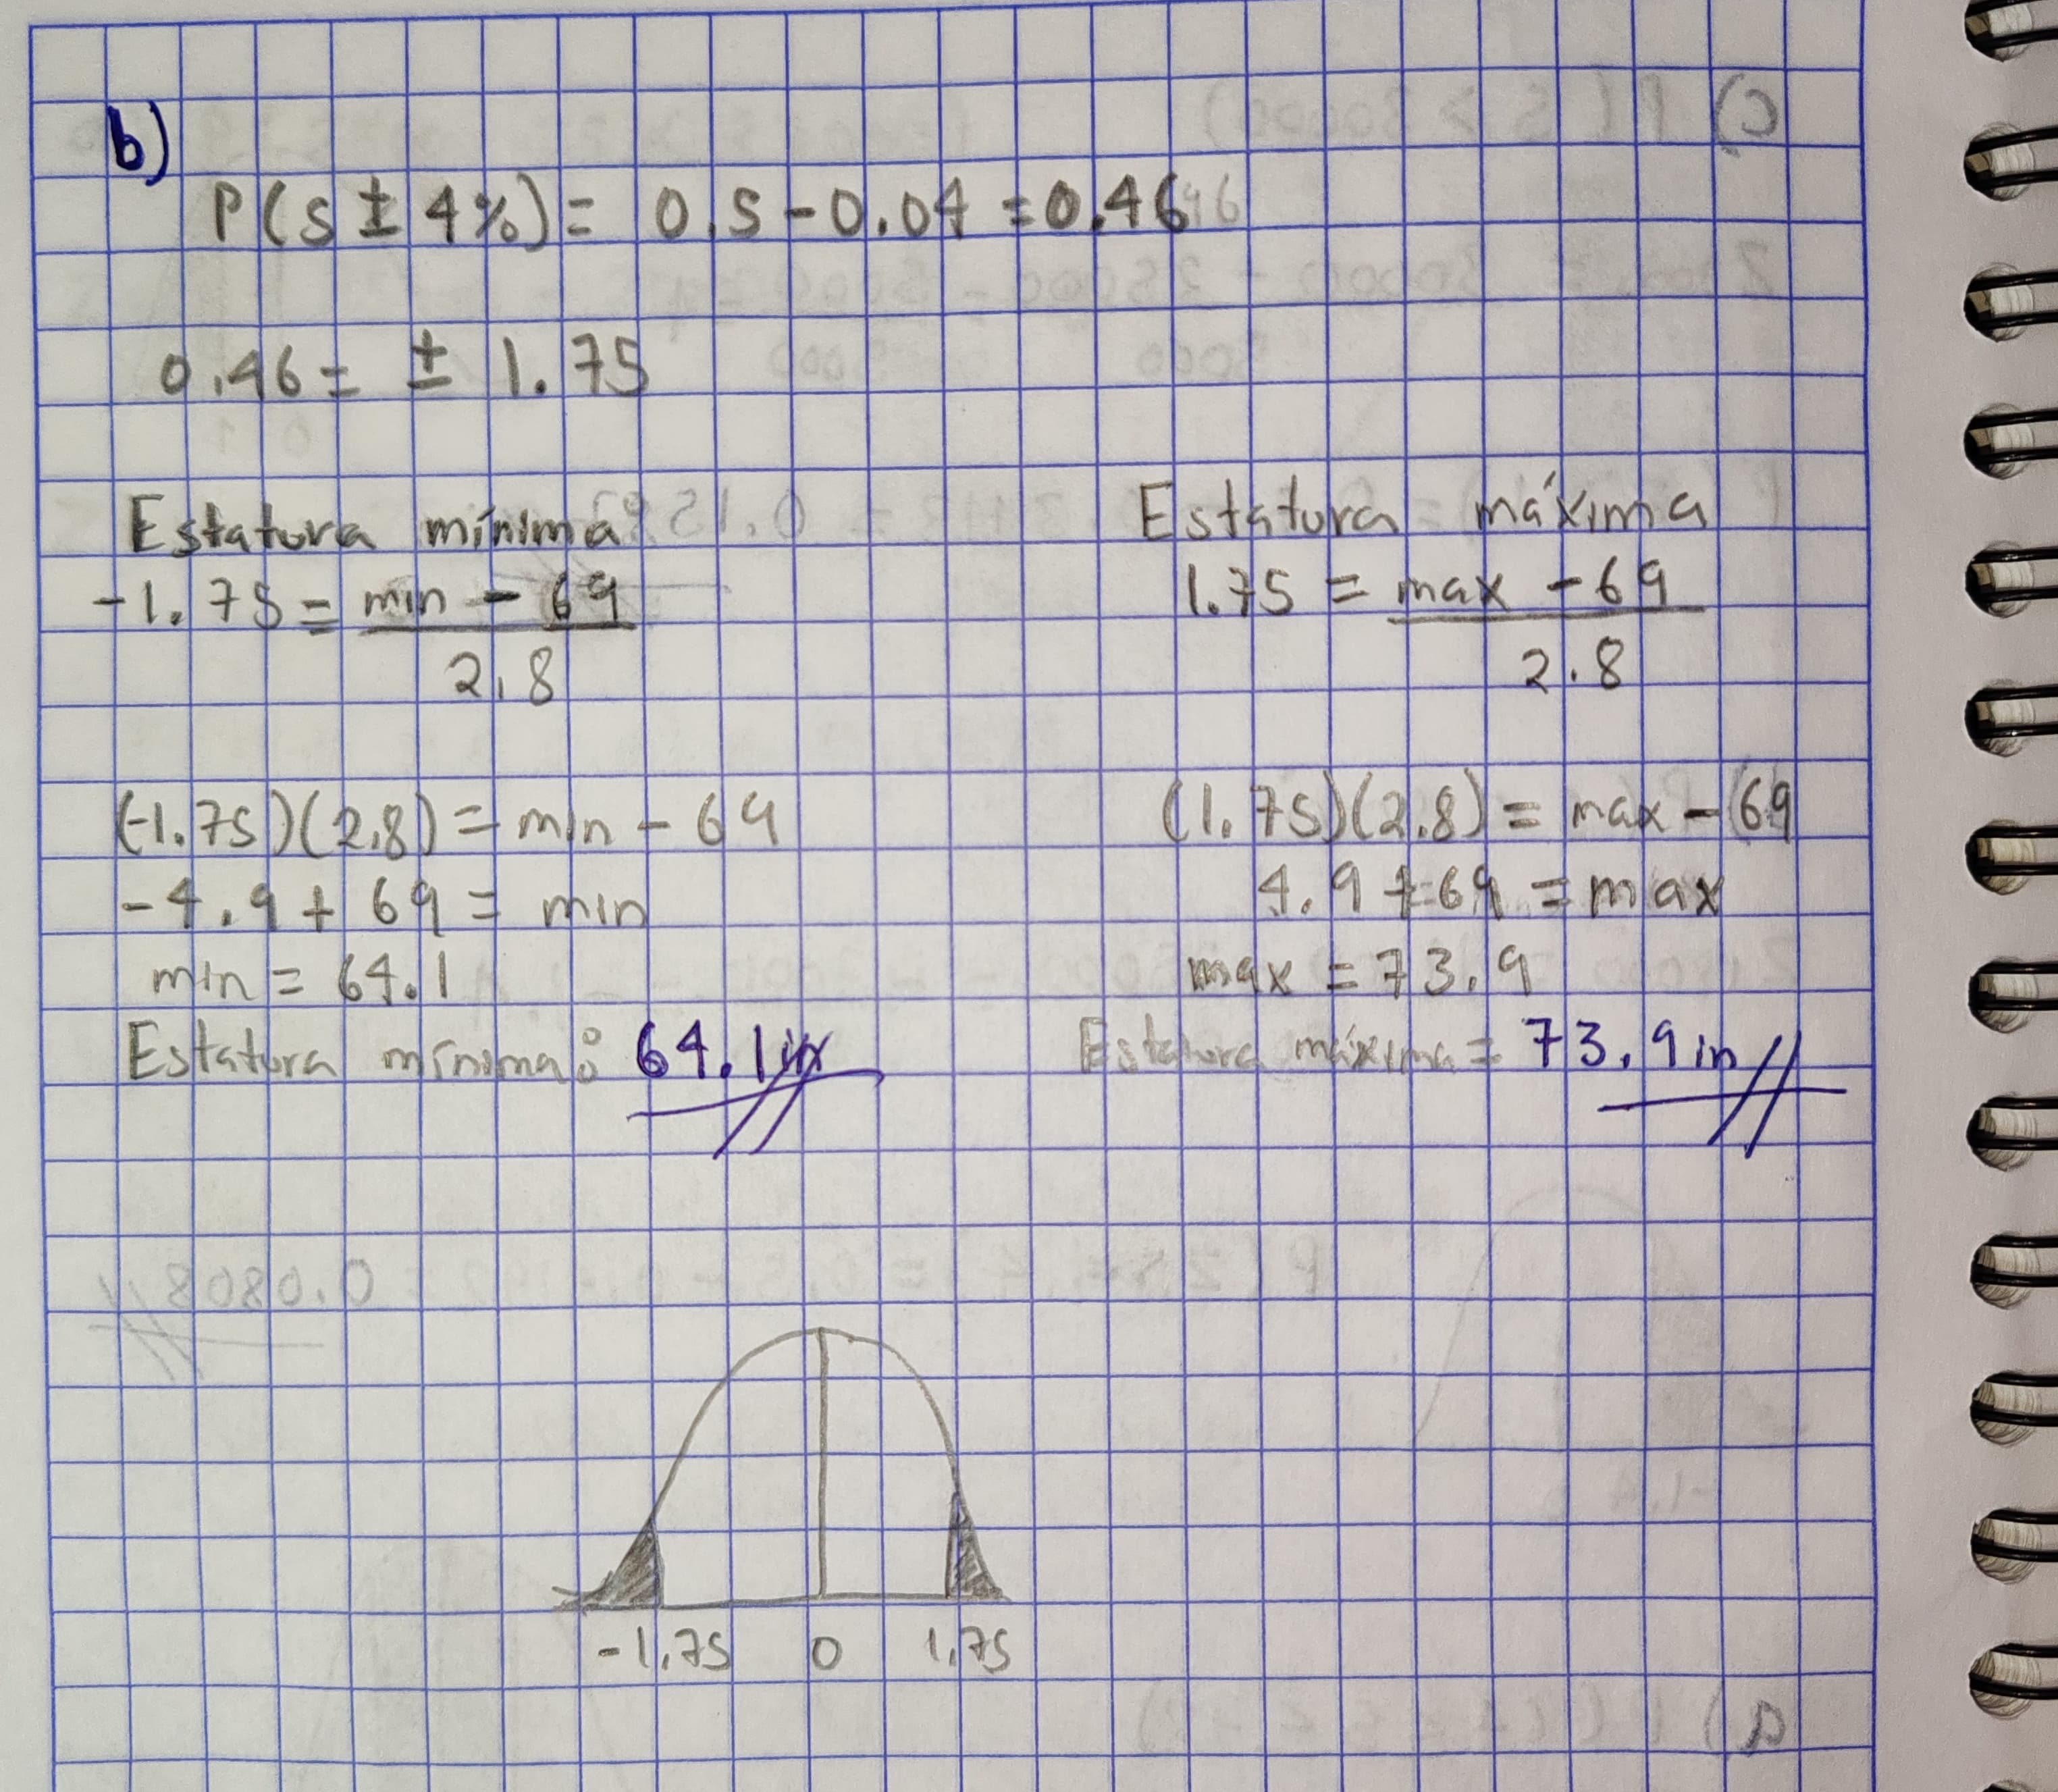 b)
P(s ± 4%) = 0.5 - 0.04 = 0.46
0.46 = ± 1.75
Estatura mínima
-1.75 = min - 69
2.8
(-1.75)(2.8) = min - 69
-4.9 + 69 = min
min = 64.1
Estatura mínima: 64.1 in
Estatura máxima
1.75 = max - 69
2.8
(1.75)(2.8) = max - 69
4.9 + 69 = max
max = 73.9
Estatura máxima = 73.9 in
-1.75 0 1.75